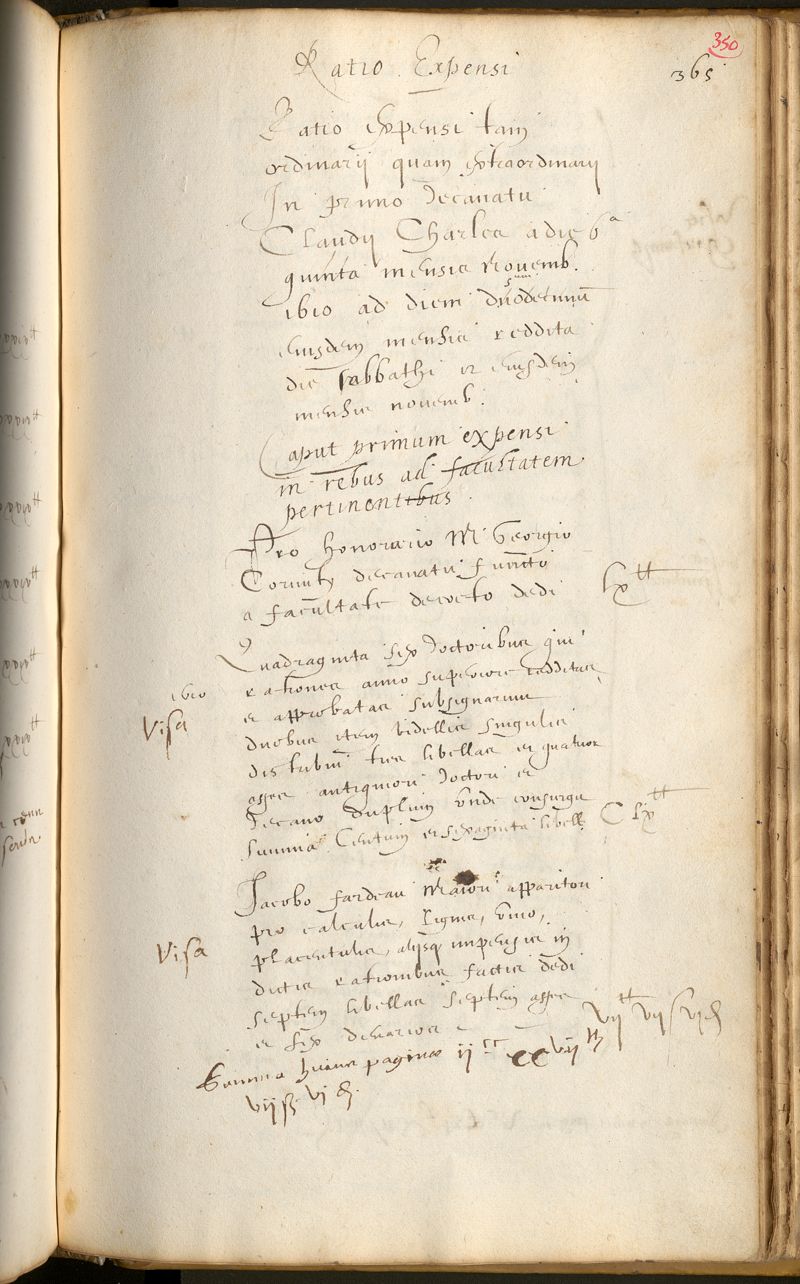 350
365
Ratio Expensi
Ratio expensi tam
ordinarij quam extraordinarij
In primo decanatu
Claudij Charles a die 6a
quinta mensis Novemb.
1610 ad diem
eiusdem mensis reddita
die sabbathi eiusdem
mensis novemb.
Caput primum expensi
in rebus ad facultatem
pertinentibus.
Pro honorario M. Georgio
Cornuty decanatu functo
a facultate decreto dedi lx tt
Quadraginta sex doctoribus qui
1610 rationes anno superiore redditas
Visa et approbatas subsignarunt
duobus item bidellis singulis
distribui tres libellas et quatuor
asses antiquiori doctori et
decano duplum unde consurgit
summa Centum et sexaginta libell. C lx tt
Jacobo fardeau Maiori apparitori
pro calculis, lignis, vino,
Visa placentulis, aliisq impensis in
dictis rationibus factis dedi
septem libellas septem asses
et sex denarios vii tt vii s vi d
Summa huius paginae ii cc xxvii tt
vii s vi d.